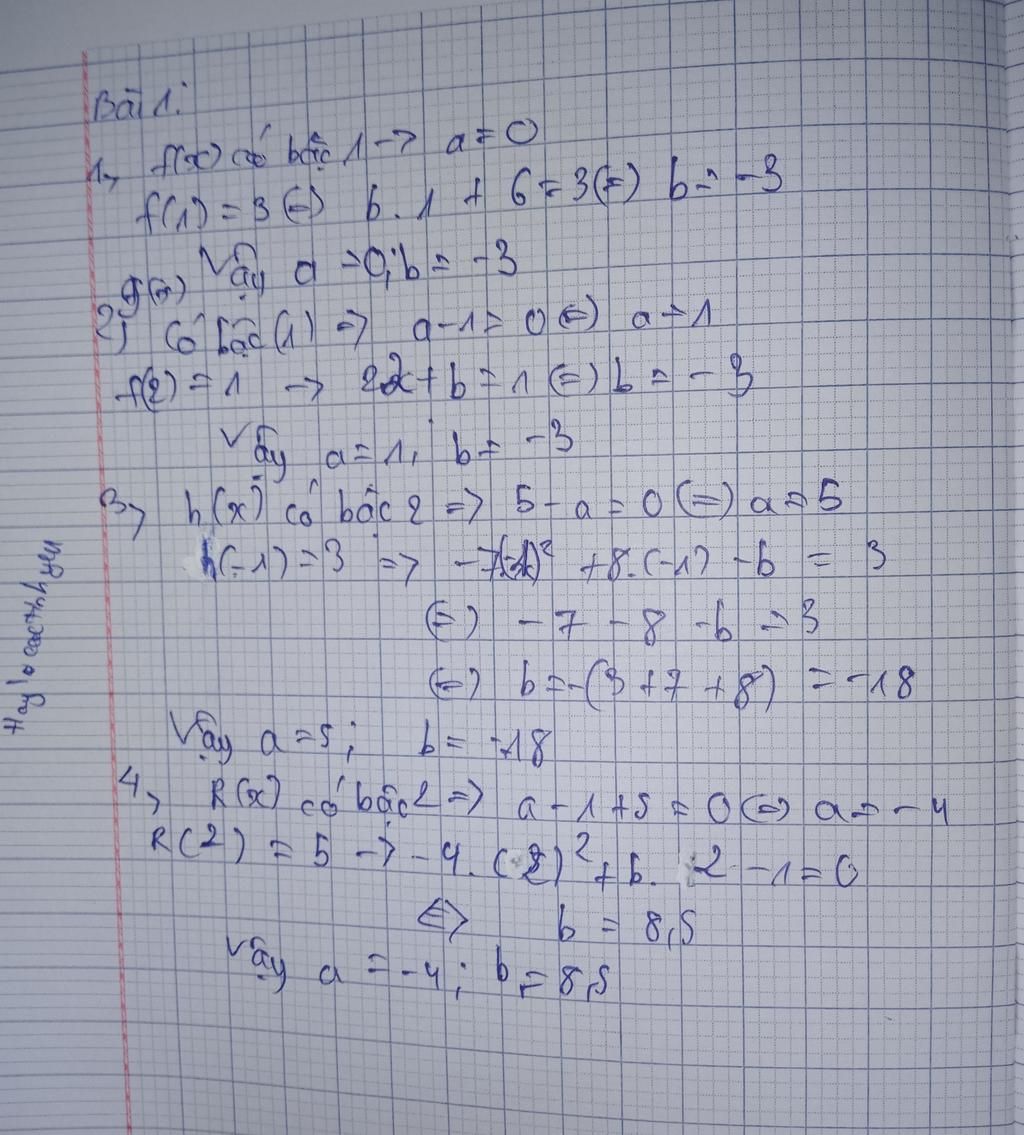 Bài 1:
1, f(x) có bậc 1 -> a = 0
f(1) = 3 (=) b . 1 + 6 = 3 (=) b = -3
Vậy a = 0; b = -3
g(x)
2, Có bậc (1) => a - 1 = 0 (=) a = 1
f(2) = 1 -> 2 + b = 1 (=) b = -3
Vậy a = 1; b = -3
3, h(x) có bậc 2 => 5 - a = 0 (=) a = 5
h(-1) = 3 => + 8.(-1) - b = 3
(=) -7 - 8 - b = 3
(=) b = -(3 + 7 + 8) = -18
Vậy a = 5; b = -18
4, R(x) có bậc 2 => a - 1 + 5 = 0 (=) a = -4
R(2) = 5 -> -4. (2)² + b. 2 - 1 = 0
<=> b = 8,5
Vậy a = -4; b = 8,5